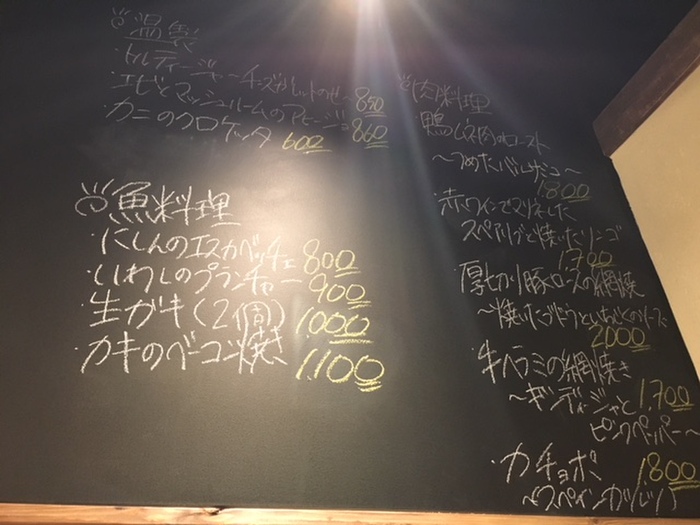 温製
・トルティージャ〜チーズガレットのせ〜 850
・エビとマッシュルームのアヒージョ 860
・カニのクロケッタ 600
魚料理
・にしんのエスカベッチェ 800
・いわしのプランチャー 900
・生ガキ(2個) 1000
・カキのベーコン焼き 1,100
肉料理
・鴨ムネ肉のロースト
〜つめたバルサミコ〜
1800
・赤ワインでマリネした
スペアリブと焼いたリンゴ
1,700
・厚切り豚ロースの網焼
2000
・牛ハラミの網焼き
〜ギンディージャと 1,700
ピンクペッパー〜
・カチョポ 1800
〜スペインカツレツ〜